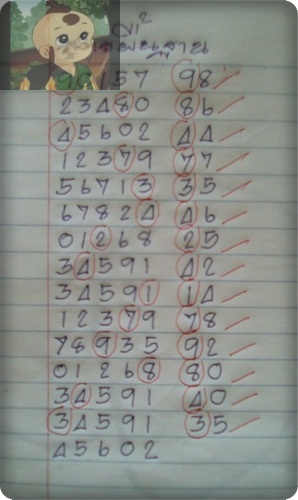 157 98
23480 86
45602 44
12379 77
56713 35
67824 46
01268 25
34591 42
34591 14
12379 78
78935 92
01268 80
34591 40
34591 35
45602